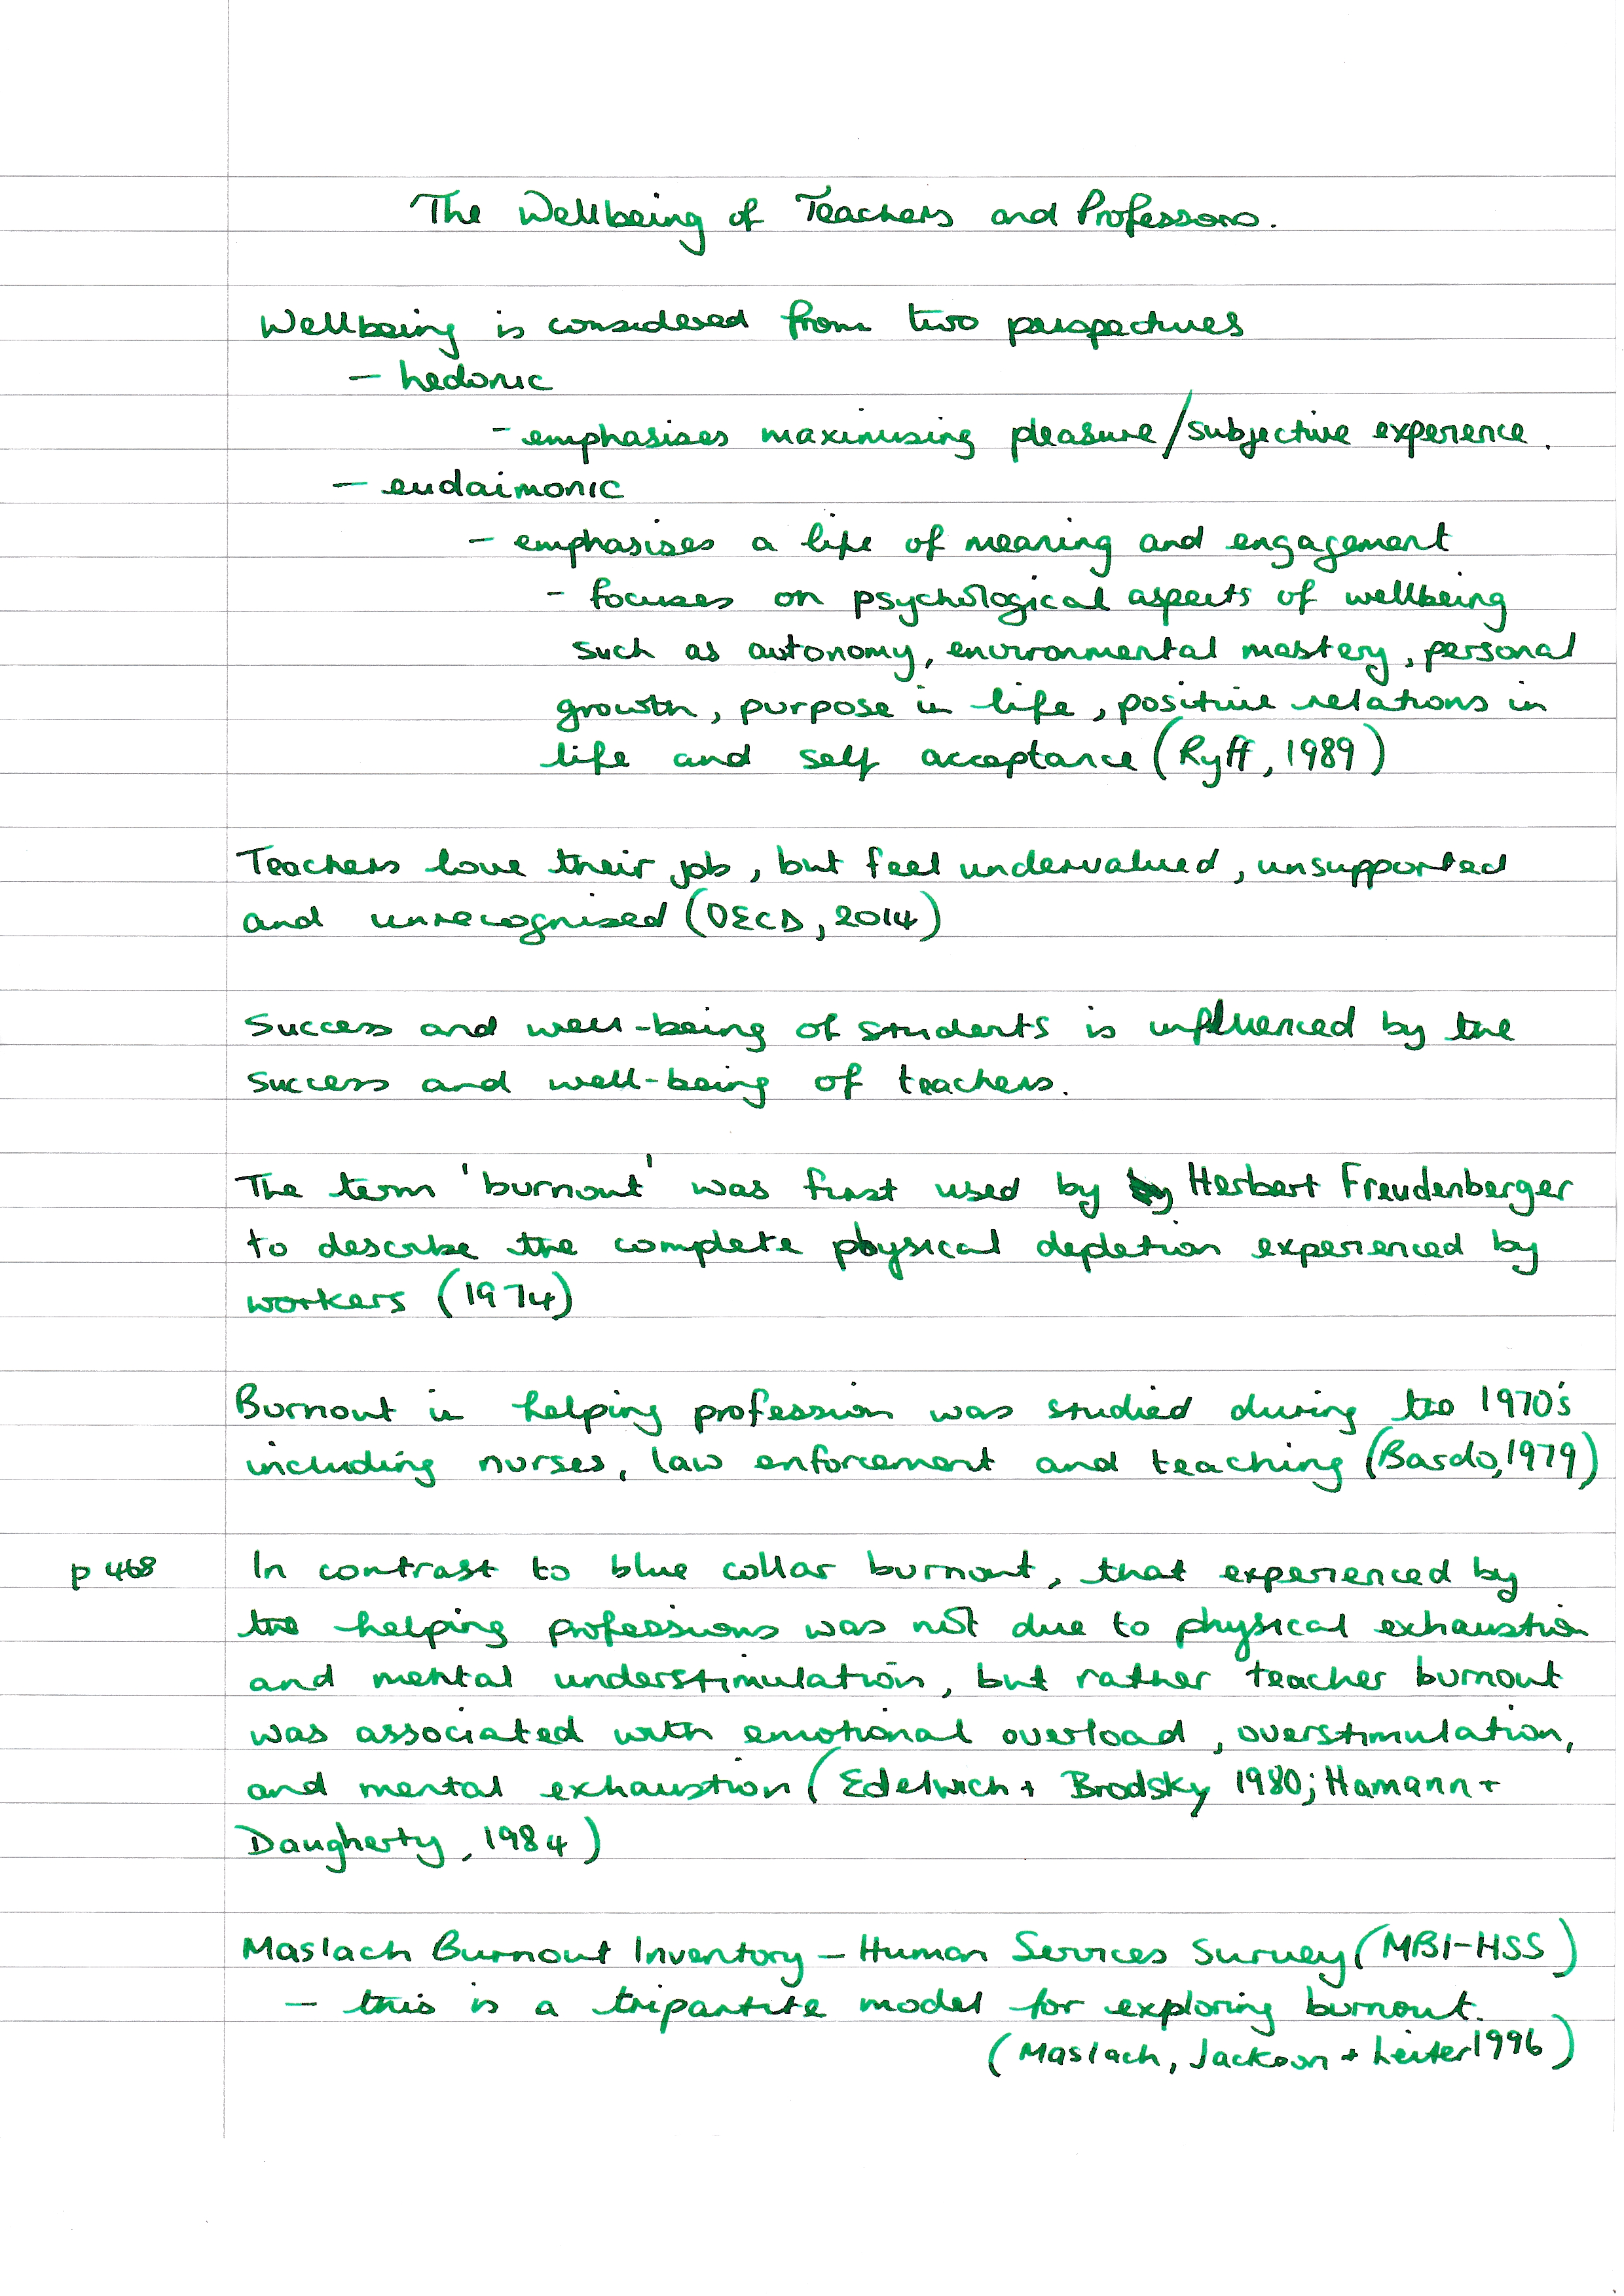 The Wellbeing of Teachers and Professors.
Wellbeing is considered from two perspectives
- hedonic
- emphasises maximising pleasure/subjective experience.
- eudaimonic
- emphasises a life of meaning and engagement
- focuses on psychological aspects of wellbeing
such as autonomy, environmental mastery, personal
growth, purpose in life, positive relations in
life and self acceptance (Ryff, 1989)
Teachers love their job, but feel undervalued, unsupported
and unrecognised (OECD, 2014)
Success and well-being of students is influenced by the
success and well-being of teachers.
The term 'burnout' was first used by Herbert Freudenberger
to describe the complete physical depletion experienced by
workers (1974)
Burnout in helping profession was studied during the 1970's
including nurses, law enforcement and teaching (Bardo, 1979)
p 468 In contrast to blue collar burnout, that experienced by
the helping professions was not due to physical exhaustion
and mental understimulation, but rather teacher burnout
was associated with emotional overload, overstimulation,
and mental exhaustion (Edelwich + Brodsky 1980; Hamann +
Daugherty, 1984)
Maslach Burnout Inventory - Human Services Survey (MBI-HSS)
- this is a tripartite model for exploring burnout.
(Maslach, Jackson + Leiter 1996)